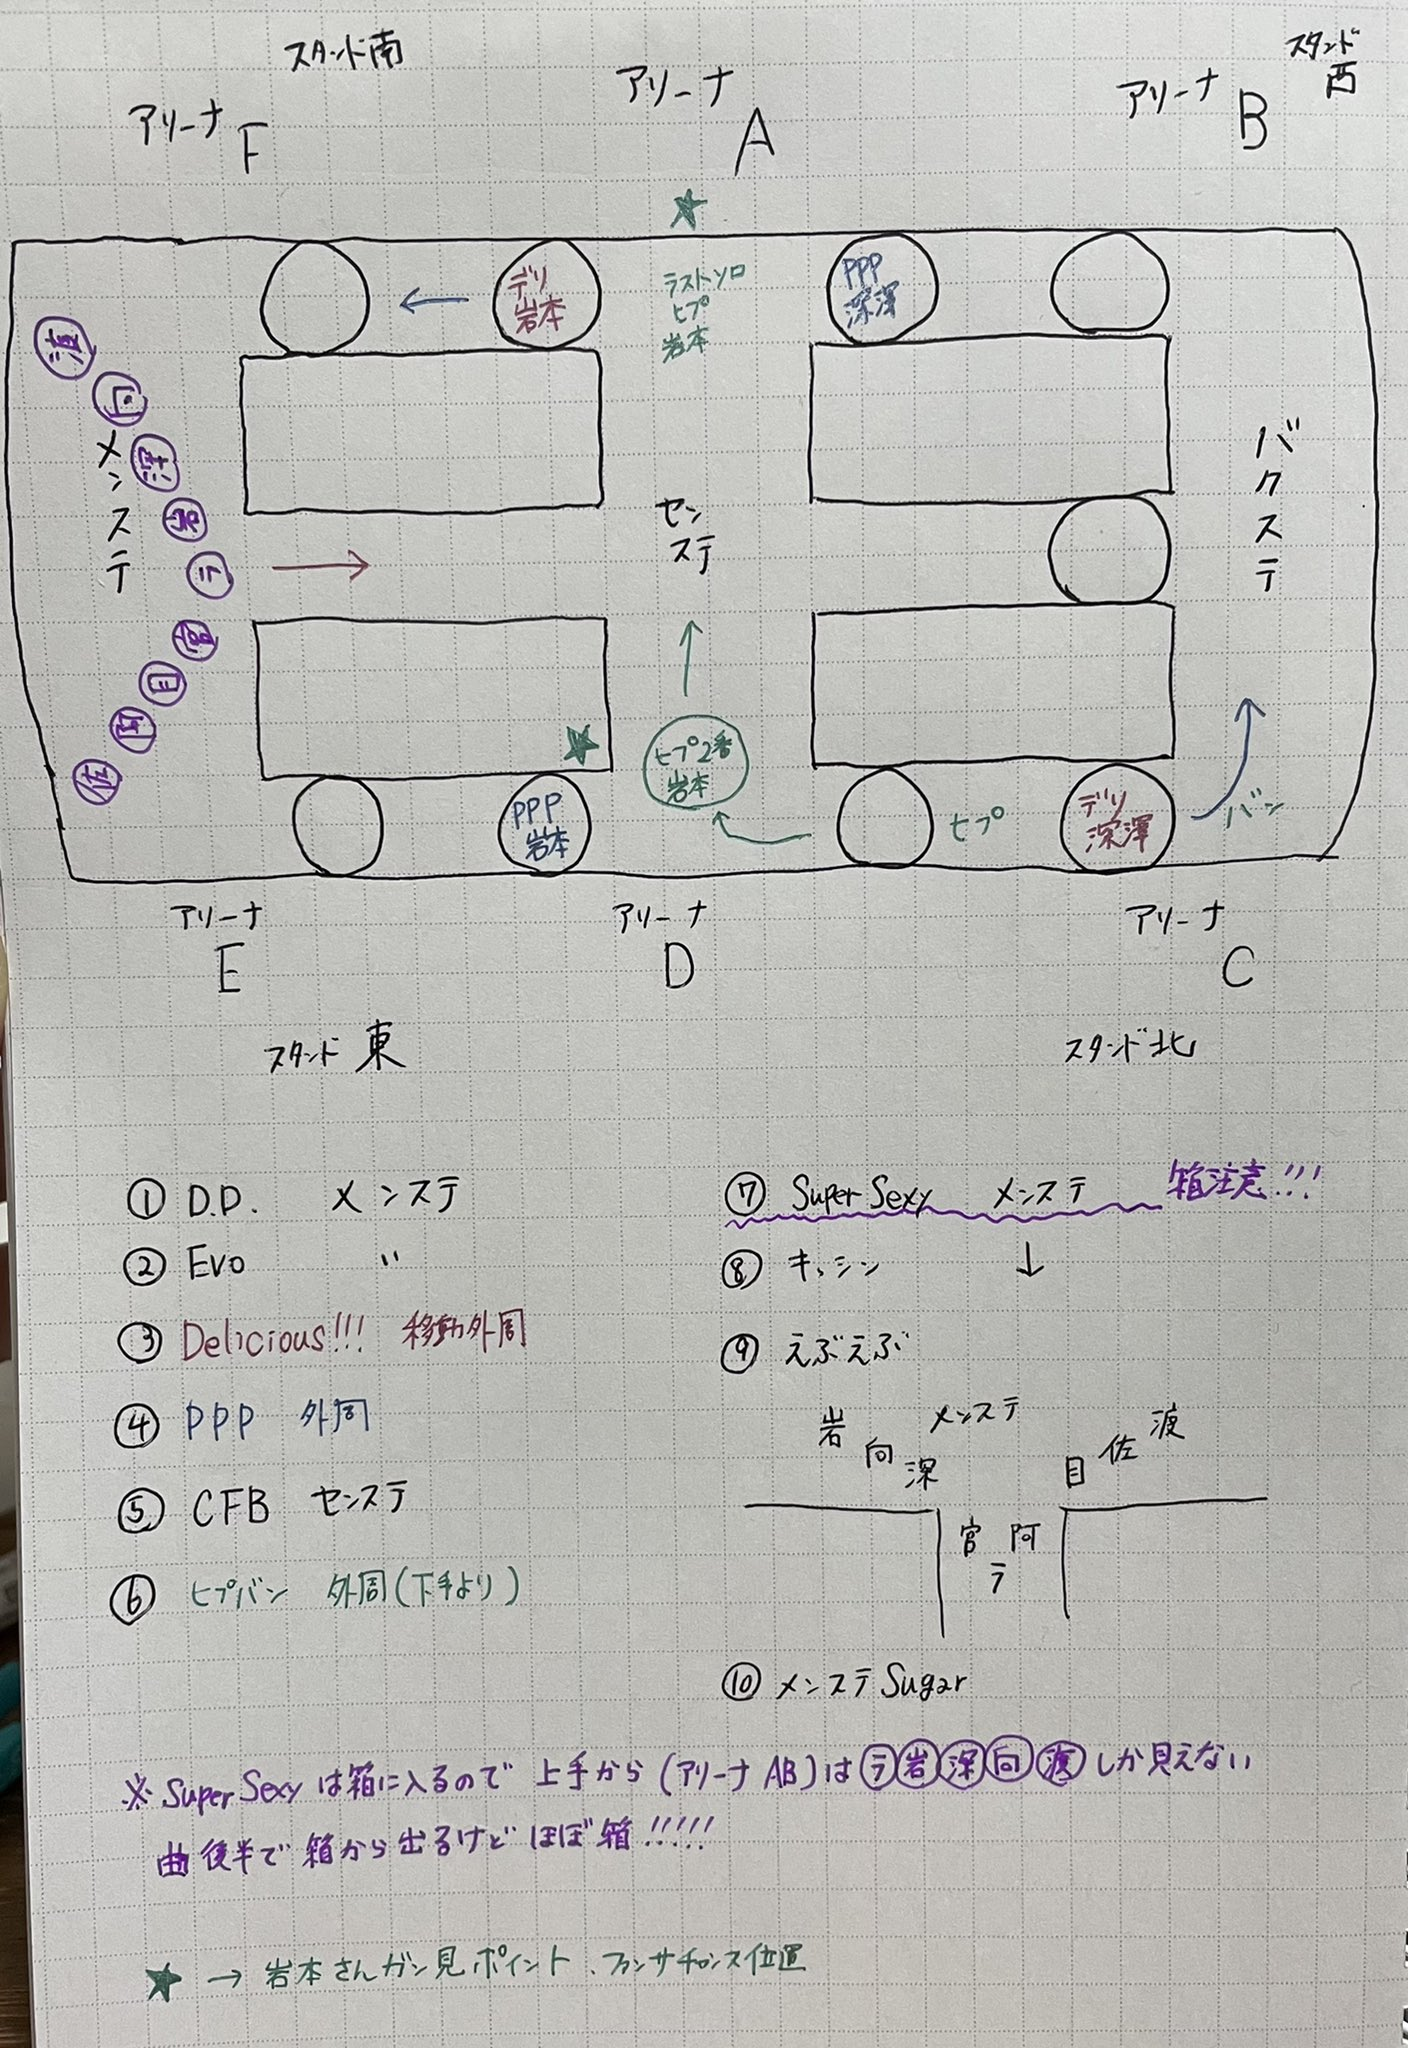 スタンド南
スタンド西
アリーナ F
アリーナ A
アリーナ B
★
デリ
岩本
←
ラストソロ
ヒプ
岩本
PPP
深澤
渡
向
深
岩
ラ
宮
目
阿
佐
メンステ
→
センステ
バクステ
↑
★
ヒプ2番
岩本
PPP
岩本
ヒプ
デリ
深澤
バン
アリーナ E
アリーナ D
アリーナ C
スタンド東
スタンド北
① D.D. メンステ
② Evo 〃
③ Delicious!!! 移動外周
④ PPP 外周
⑤ CFB センステ
⑥ ヒプバン 外周(下手より)
⑦ Super Sexy メンステ 箱注意!!!
⑧ キッシン ↓
⑨ えぶえぶ
メンステ
岩 向 深 目 佐 渡
宮 阿
ラ
⑩ メンステ Sugar
※ Super Sexy は箱に入るので 上手から(アリーナ AB)は ラ 岩 深 向 渡 しか見えない
曲後半で箱から出るけど ほぼ箱!!!!!
★ → 岩本さんガン見ポイント、ファンサチャンス位置